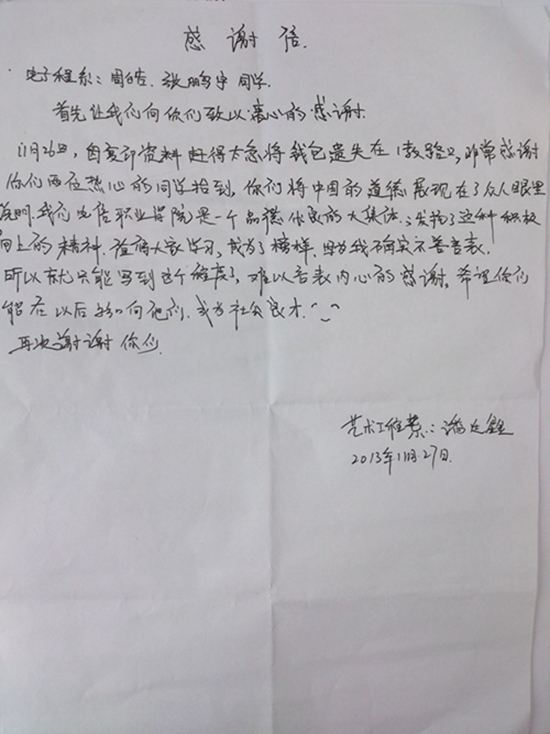 感谢信.
电子工程系：周皓、张鹏宇 同学
首先让我们向你们致以衷心的感谢.
11月26日，因复印资料赶得太急将我包遗失在1教路口，非常感谢
你们两位热心的同学拾到，你们将中国的道德展现在了众人眼里
说明我们电信职业学院是一个品德优良的大集体、发扬了这种积极
向上的精神. 值得大家学习，成为了榜样. 因为我确实不善言表.
所以就只能写到这个程度了，难以言表内心的感谢，希望你们
能在以后 向 成为社会良才.^_^
再次谢谢你们.
艺术工程系：潘
2013年11月27日.